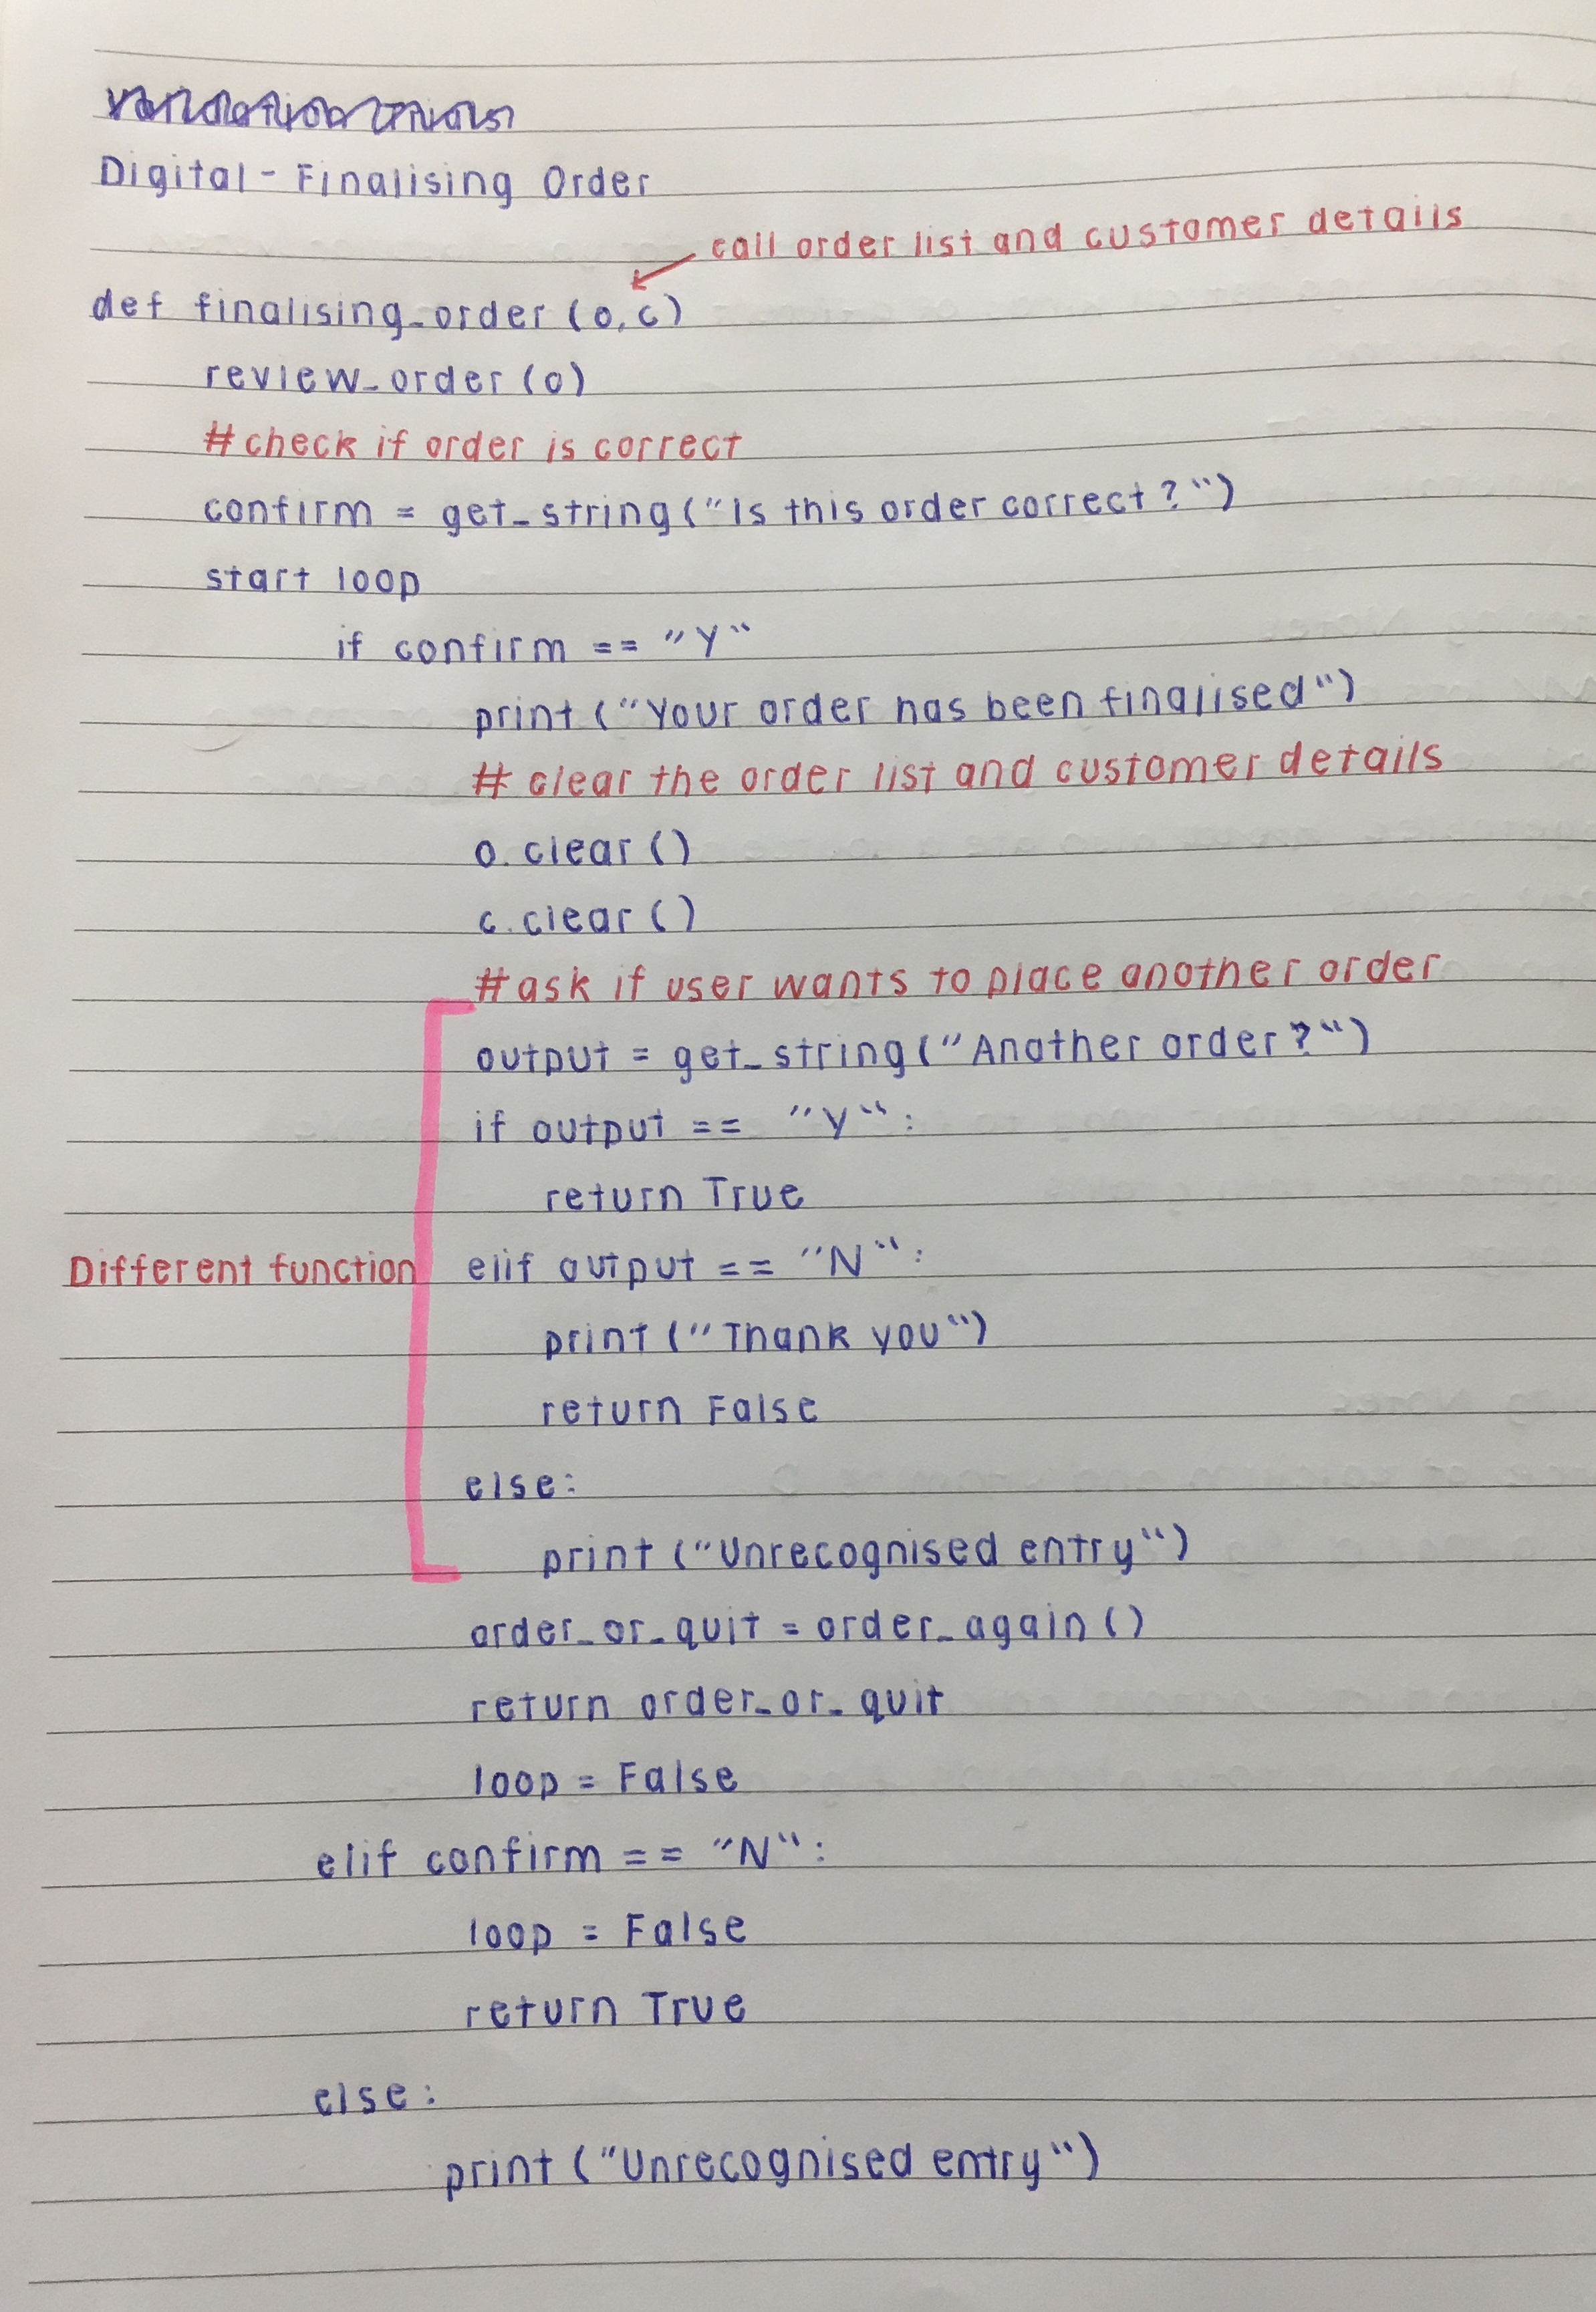 Digital - Finalising Order
call order list and customer details
def finalising_order (o,c)
review_order (o)
#check if order is correct
confirm = get_string ("Is this order correct?")
start loop
if confirm == "Y"
print ("Your order has been finalised")
# clear the order list and customer details
o.clear ()
c.clear ()
#ask if user wants to place another order
output = get_string ("Another order?")
if output == "Y":
return True
Different function
elif output == "N":
print ("Thank you")
return False
else:
print ("Unrecognised entry")
order_or_quit = order_again ()
return order_or_quit
loop = False
elif confirm == "N":
loop = False
return True
else:
print ("Unrecognised entry")